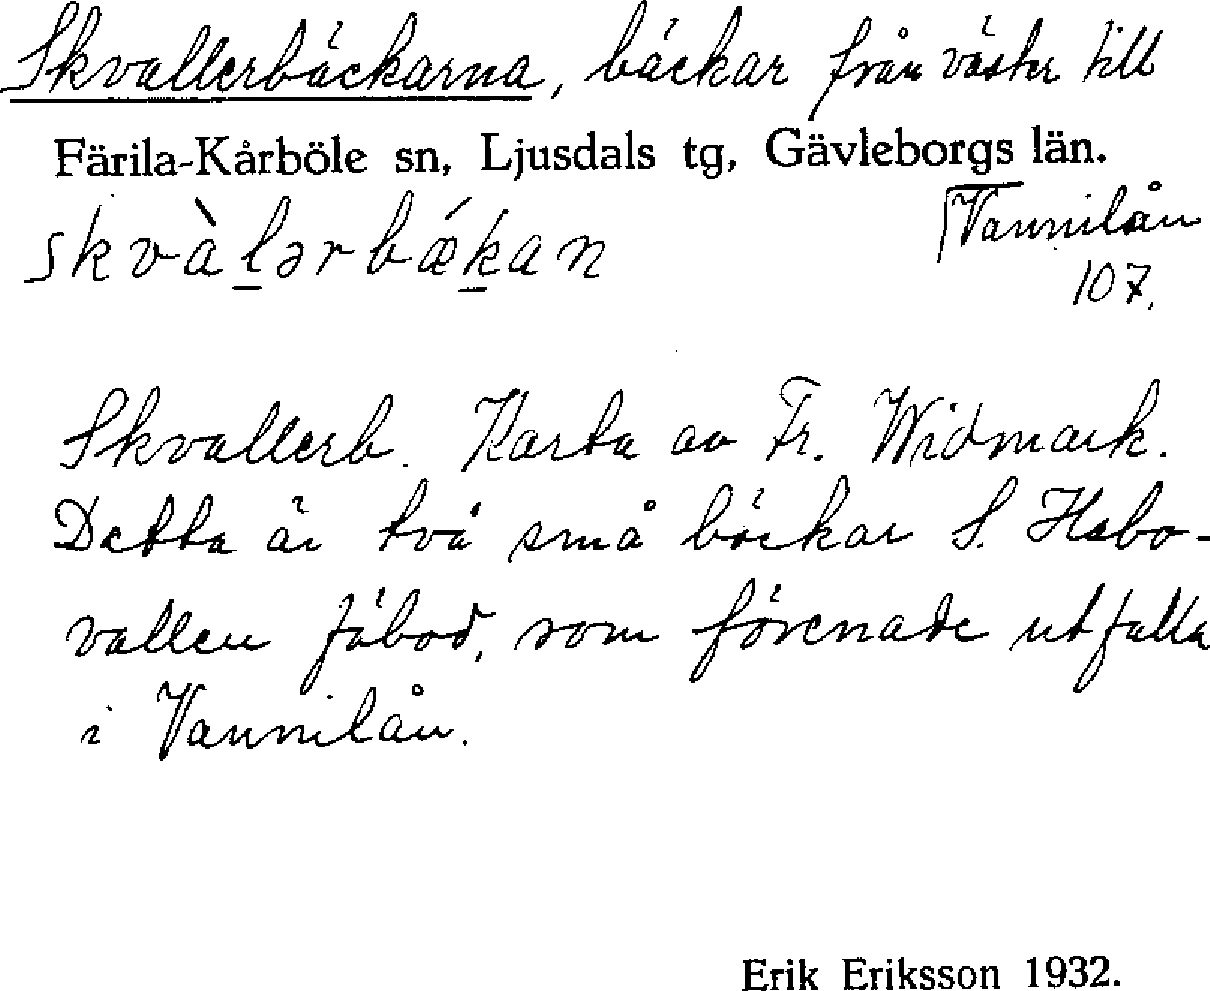 Skvallerbäckarna, bäckar från väster till
Färila-Kårböle sn, Ljusdals tg, Gävleborgs län.
skvàlərbǽkan
Vannilån
107.
Skvallerb. Karta av Fr. Widmark.
Detta är två små bäckar S. Habo-
vallen fäbod, som förenade utfalla
i Vannilån.
Erik Eriksson 1932.